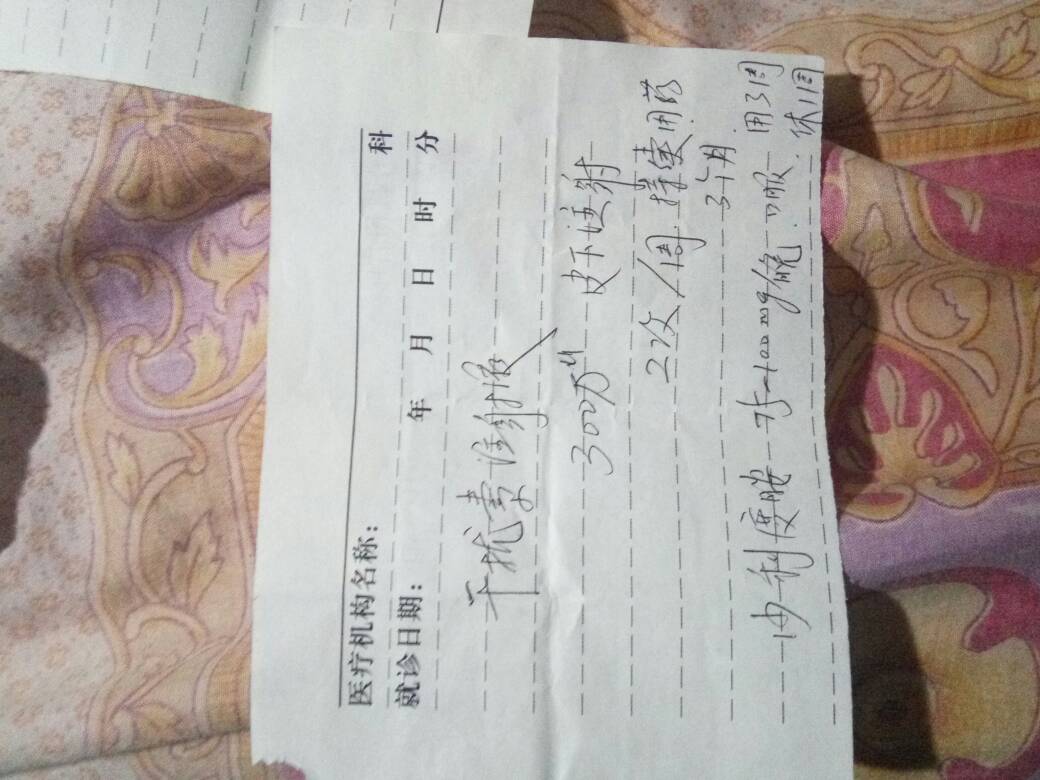 医疗机构名称： 科
就诊日期： 年 月 日 时 分
干扰素注射液
300万u 皮下注射
2次/周 持续用药
3个月
沙利度胺 75-100mg/晚 口服 用3周
休1周